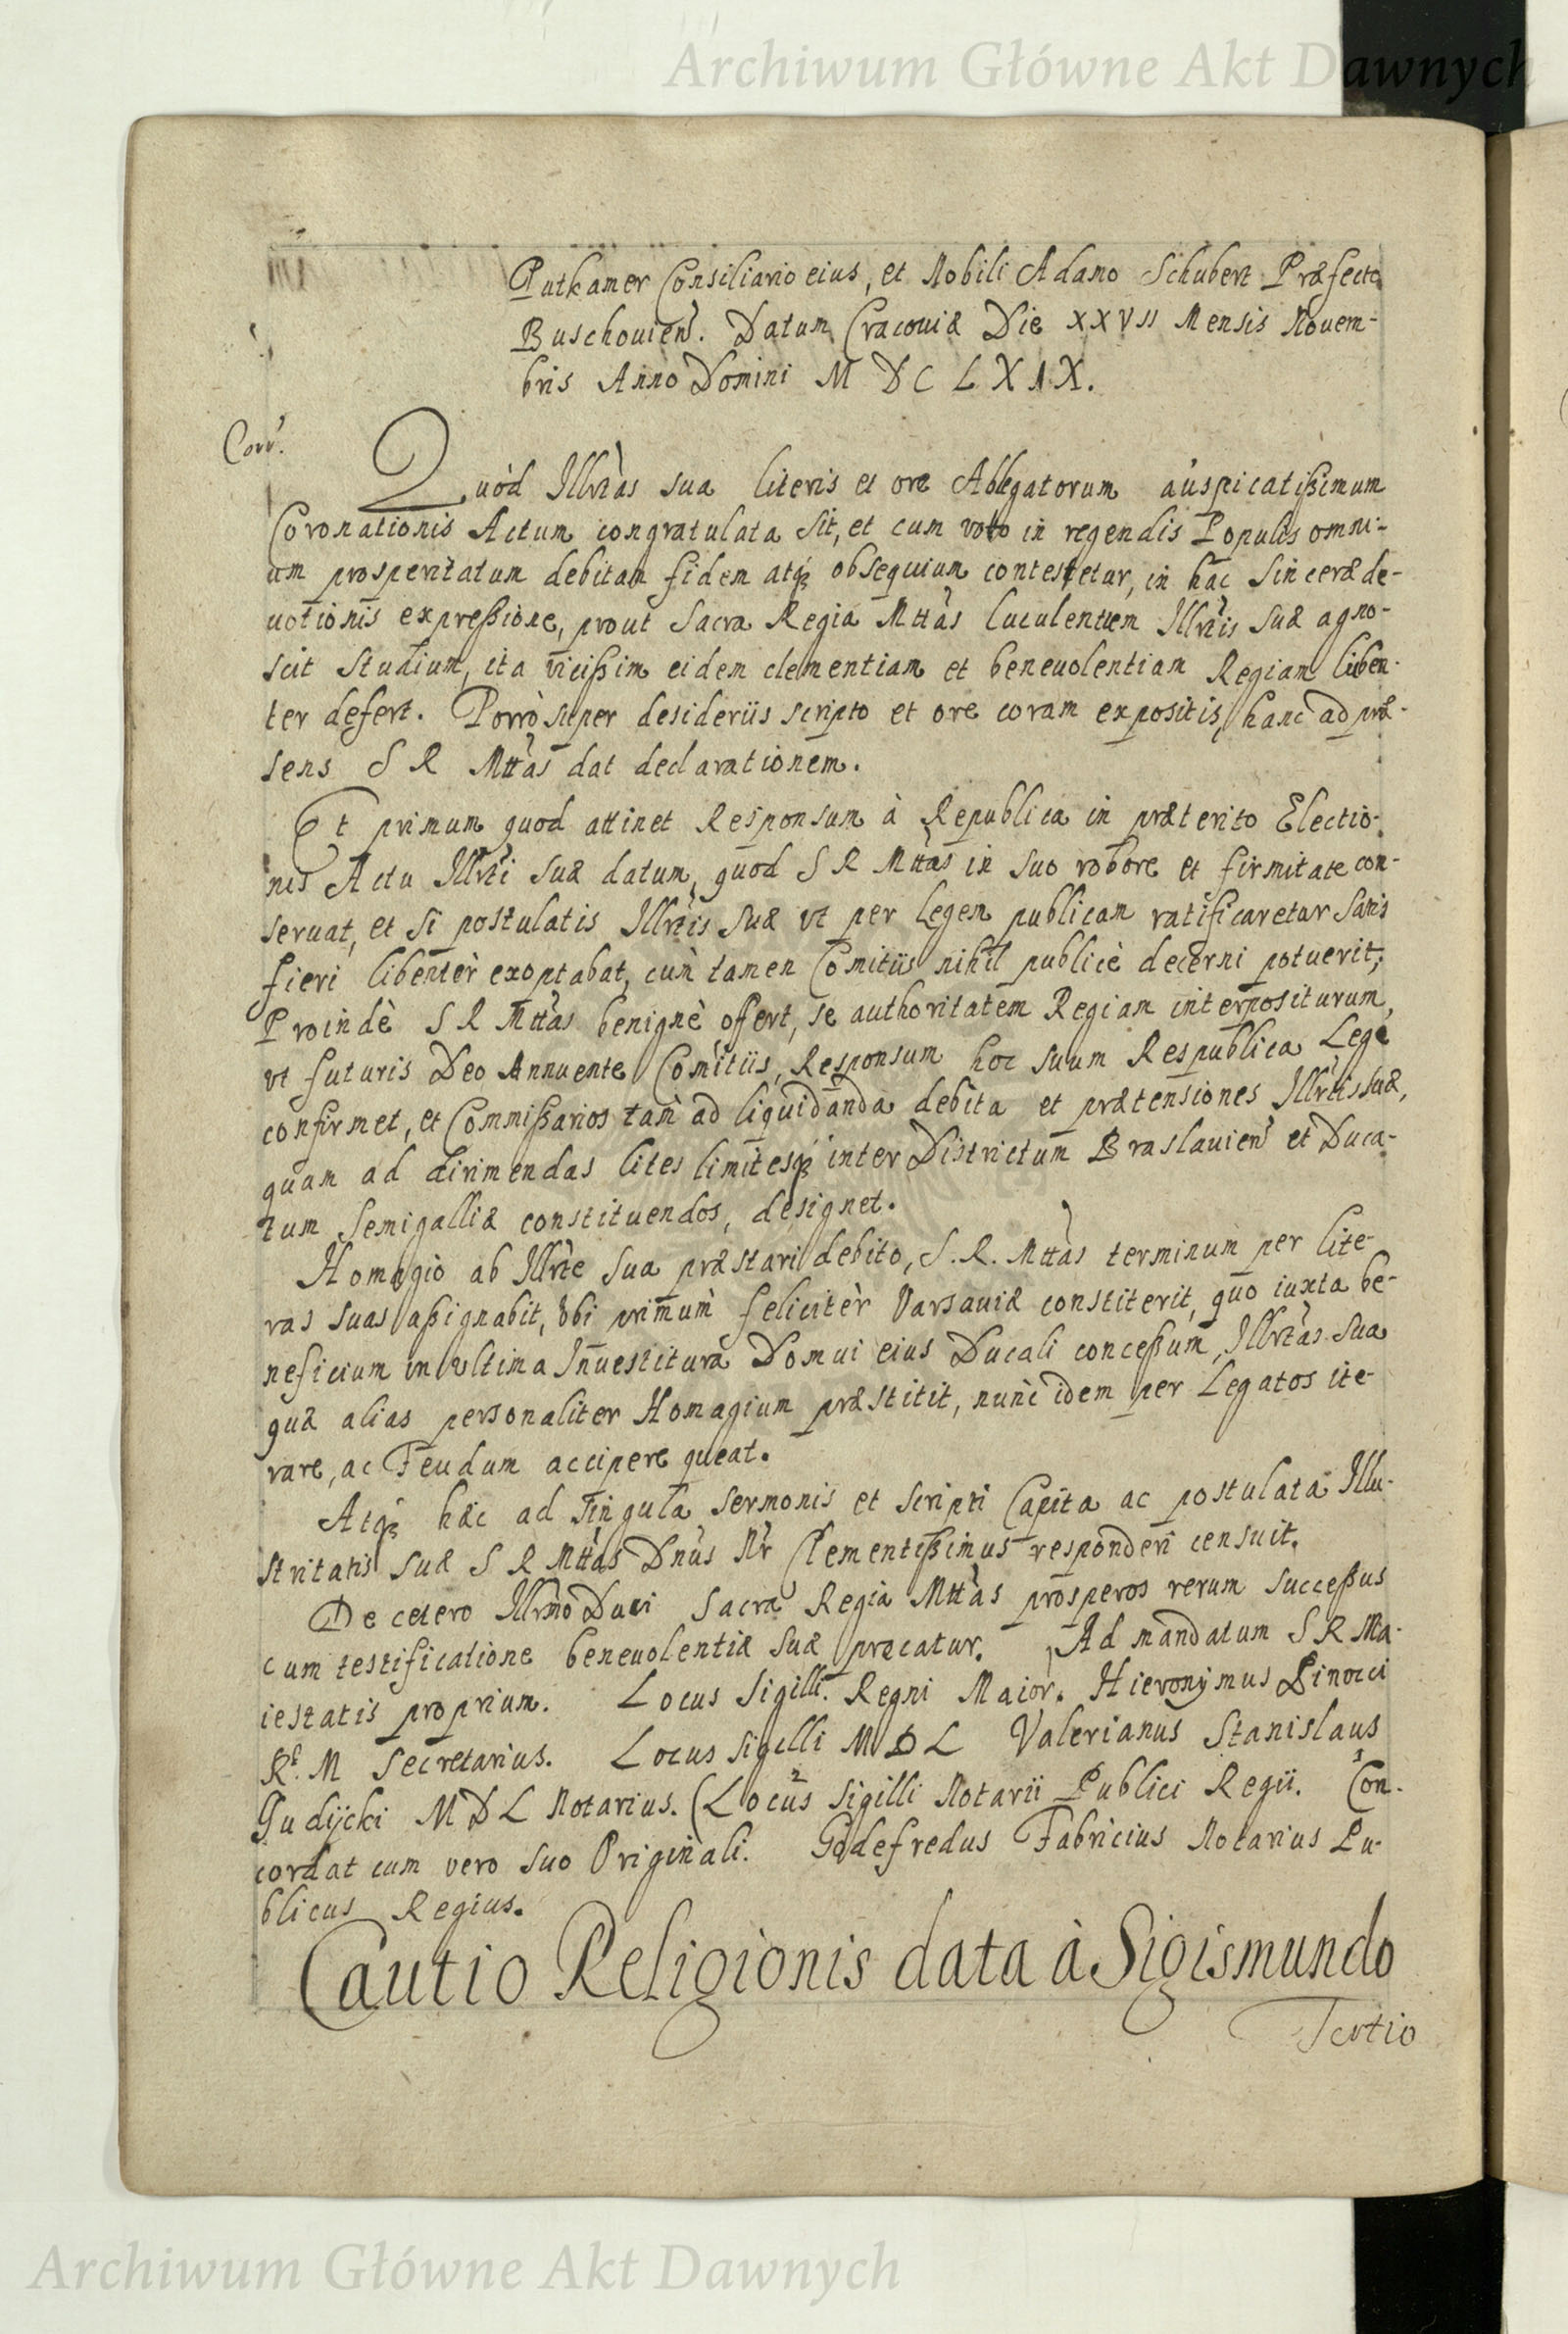 Archiwum Główne Akt Dawnych
Putkamer Consiliario eius, et Nobili Adamo Schubert Præfecto
Buschouien̄. Datum Cracouiæ Die XXVII Mensis Nouem-
bris Anno Domini M DC LXIX.
Corr.
Quòd Illrtas sua literis et ore Ablegatorum auspicatißimum
Coronationis Actum congratulata sit, et cum voto in regendis Populis omni-
um prosperitatum debitam fidem atq; obsequium contestetur, in hac sinceræ de-
uotionis expreßione, prout Sacra Regia Mttas luculentum Illrtis suæ agno-
scit studium, ita vicißim eidem clementiam et beneuolentiam Regiam liben-
ter defert. Porrò super desideriis scripto et ore coram expositis, hanc ad præ-
sens S R Mttas dat declarationem.
Et primum quod attinet Responsum à Republica in præterito Electio-
nis Actu Illrti suæ datum, quod S R Mttas in suo robore et firmitate con-
seruat, et si postulatis Illrtis suæ vt per legem publicam ratificaretur satis
fieri libentèr exoptabat, cùm tamen Comitiis nihil publicè decerni potuerit;
Proindè S R Mttas benignè offert, se authoritatem Regiam interpositurum,
vt futuris Deo Annuente Comitiis, Responsum hoc suum Respublica Lege
confirmet, et Commißarios tam ad liquidanda debita et prætensiones Illrtis suæ,
quam ad dirimendas lites limitesq; inter Districtum Braslauien̄ et Duca-
tum Semigalliæ constituendos, designet.
Homagio ab Illrte sua præstari debito, S. R. Mttas terminum per lite-
ras suas aßignabit, vbi primum feliciter Varsauiæ constiterit, quo iuxta be-
neficium in vltima Inuestitura Domui eius Ducali conceßum, Illrtas sua
quæ alias personaliter Homagium præstitit, nunc idem per Legatos ite-
rare, ac Feudum accipere queat.
Atq; hæc ad singula sermonis et scripti Capita ac postulata Illu-
stritatis suæ S R Mttas Dnus Nr Clementißimus responderi censuit.
De cetero Illrmo Duci Sacra Regia Mttas prosperos rerum succeßus
cum testificatione beneuolentiæ suæ precatur. Ad mandatum S R Ma-
iestatis proprium. Locus Sigilli Regni Maior. Hieronymus Pinocci
R. M Secretarius. Locus sigilli M D L Valerianus Stanislaus
Judÿcki M D L Notarius. (Locus sigilli Notarii Publici Regii. Con-
cordat cum vero suo Originali. Godefredus Fabricius Notarius Pu-
blicus Regius.
Cautio Religionis data à Sigismundo
Tertio
Archiwum Główne Akt Dawnych